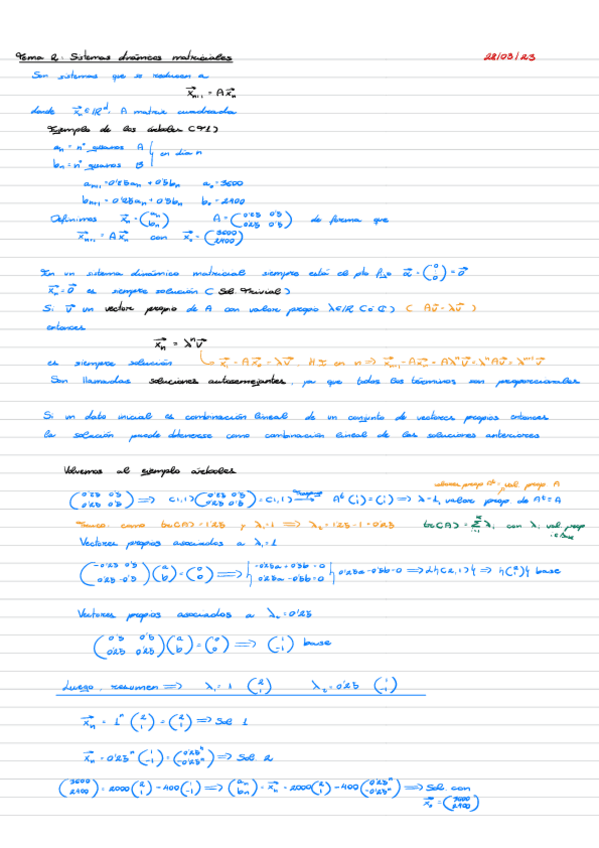 Tema 2: Sistemas dinámicos matriciales 22/03/23
Son sistemas que se reducen a
x⃗ₙ₊₁ = A x⃗ₙ
donde x⃗ₙ ∈ ℝᵈ, A matriz cuadrada
Ejemplo de los árboles (T1)
aₙ = nº guaros A
bₙ = nº guaros B } en día n
aₙ₊₁ = 0'75aₙ + 0'5bₙ a₀ = 3600
bₙ₊₁ = 0'25aₙ + 0'5bₙ b₀ = 2400
Definimos x⃗ₙ = (aₙ bₙ) A = (0'75 0'5 0'25 0'5) de forma que
x⃗ₙ₊₁ = A x⃗ₙ con x⃗₀ = (3600 2400)
En un sistema dinámico matricial siempre está el pto fijo α⃗ = (0 0) = 0⃗
x⃗ₙ = 0⃗ es siempre solución (Sol. trivial)
Si v⃗ un vector propio de A con valor propio λ∈ℝ (o ℂ) (Av⃗ = λv⃗)
entonces
x⃗ₙ = λⁿv⃗
es siempre solución x⃗₁ = Ax⃗₀ = λv⃗. HI en n => x⃗ₙ₊₁ = Ax⃗ₙ = Aλⁿv⃗ = λⁿAv⃗ = λⁿ⁺¹v⃗
Son llamadas soluciones autosemejantes, ya que todos los términos son proporcionales
Si un dato inicial es combinación lineal de un conjunto de vectores propios entonces
la solución puede obtenerse como combinación lineal de las soluciones anteriores
Volvemos al ejemplo árboles
valores propios Aᵗ = val. propo A
(0'75 0'5 0'25 0'5) => (1,1)(0'75 0'5 0'25 0'5) = (1,1) → Aᵗ(1 1) = (1 1) => λ=1, valor prop. de Aᵗ = A
Truco: como tr(A) = 1'25 y λ₁=1 => λ₂ = 1'25-1 = 0'25 tr(A) = Σλᵢ con λᵢ val. prop
Vectores propios asociados a λ₁=1
(-0'25 0'5 0'25 -0'5)(a b) = (0 0) => { -0'25a + 0'5b = 0 0'25a - 0'5b = 0 } 0'25a - 0'5b = 0 => L{(2,1)} => {(2 1)} base
Vectores propios asociados a λ₂=0'25
(0'5 0'5 0'25 0'25)(a b) = (0 0) => (1 -1) base
Luego, resumen => λ₁ = 1 (2 1) λ₂ = 0'25 (1 -1)
x⃗ₙ = 1ⁿ(2 1) = (2 1) => Sol 1
x⃗ₙ = 0'25ⁿ(1 -1) = (0'25ⁿ -0'25ⁿ) => Sol. 2
(3600 2400) = 2000(2 1) - 400(1 -1) => (aₙ bₙ) = x⃗ₙ = 2000(2 1) - 400(0'25ⁿ -0'25ⁿ) => Sol. con
x⃗₀ = (3600 2400)